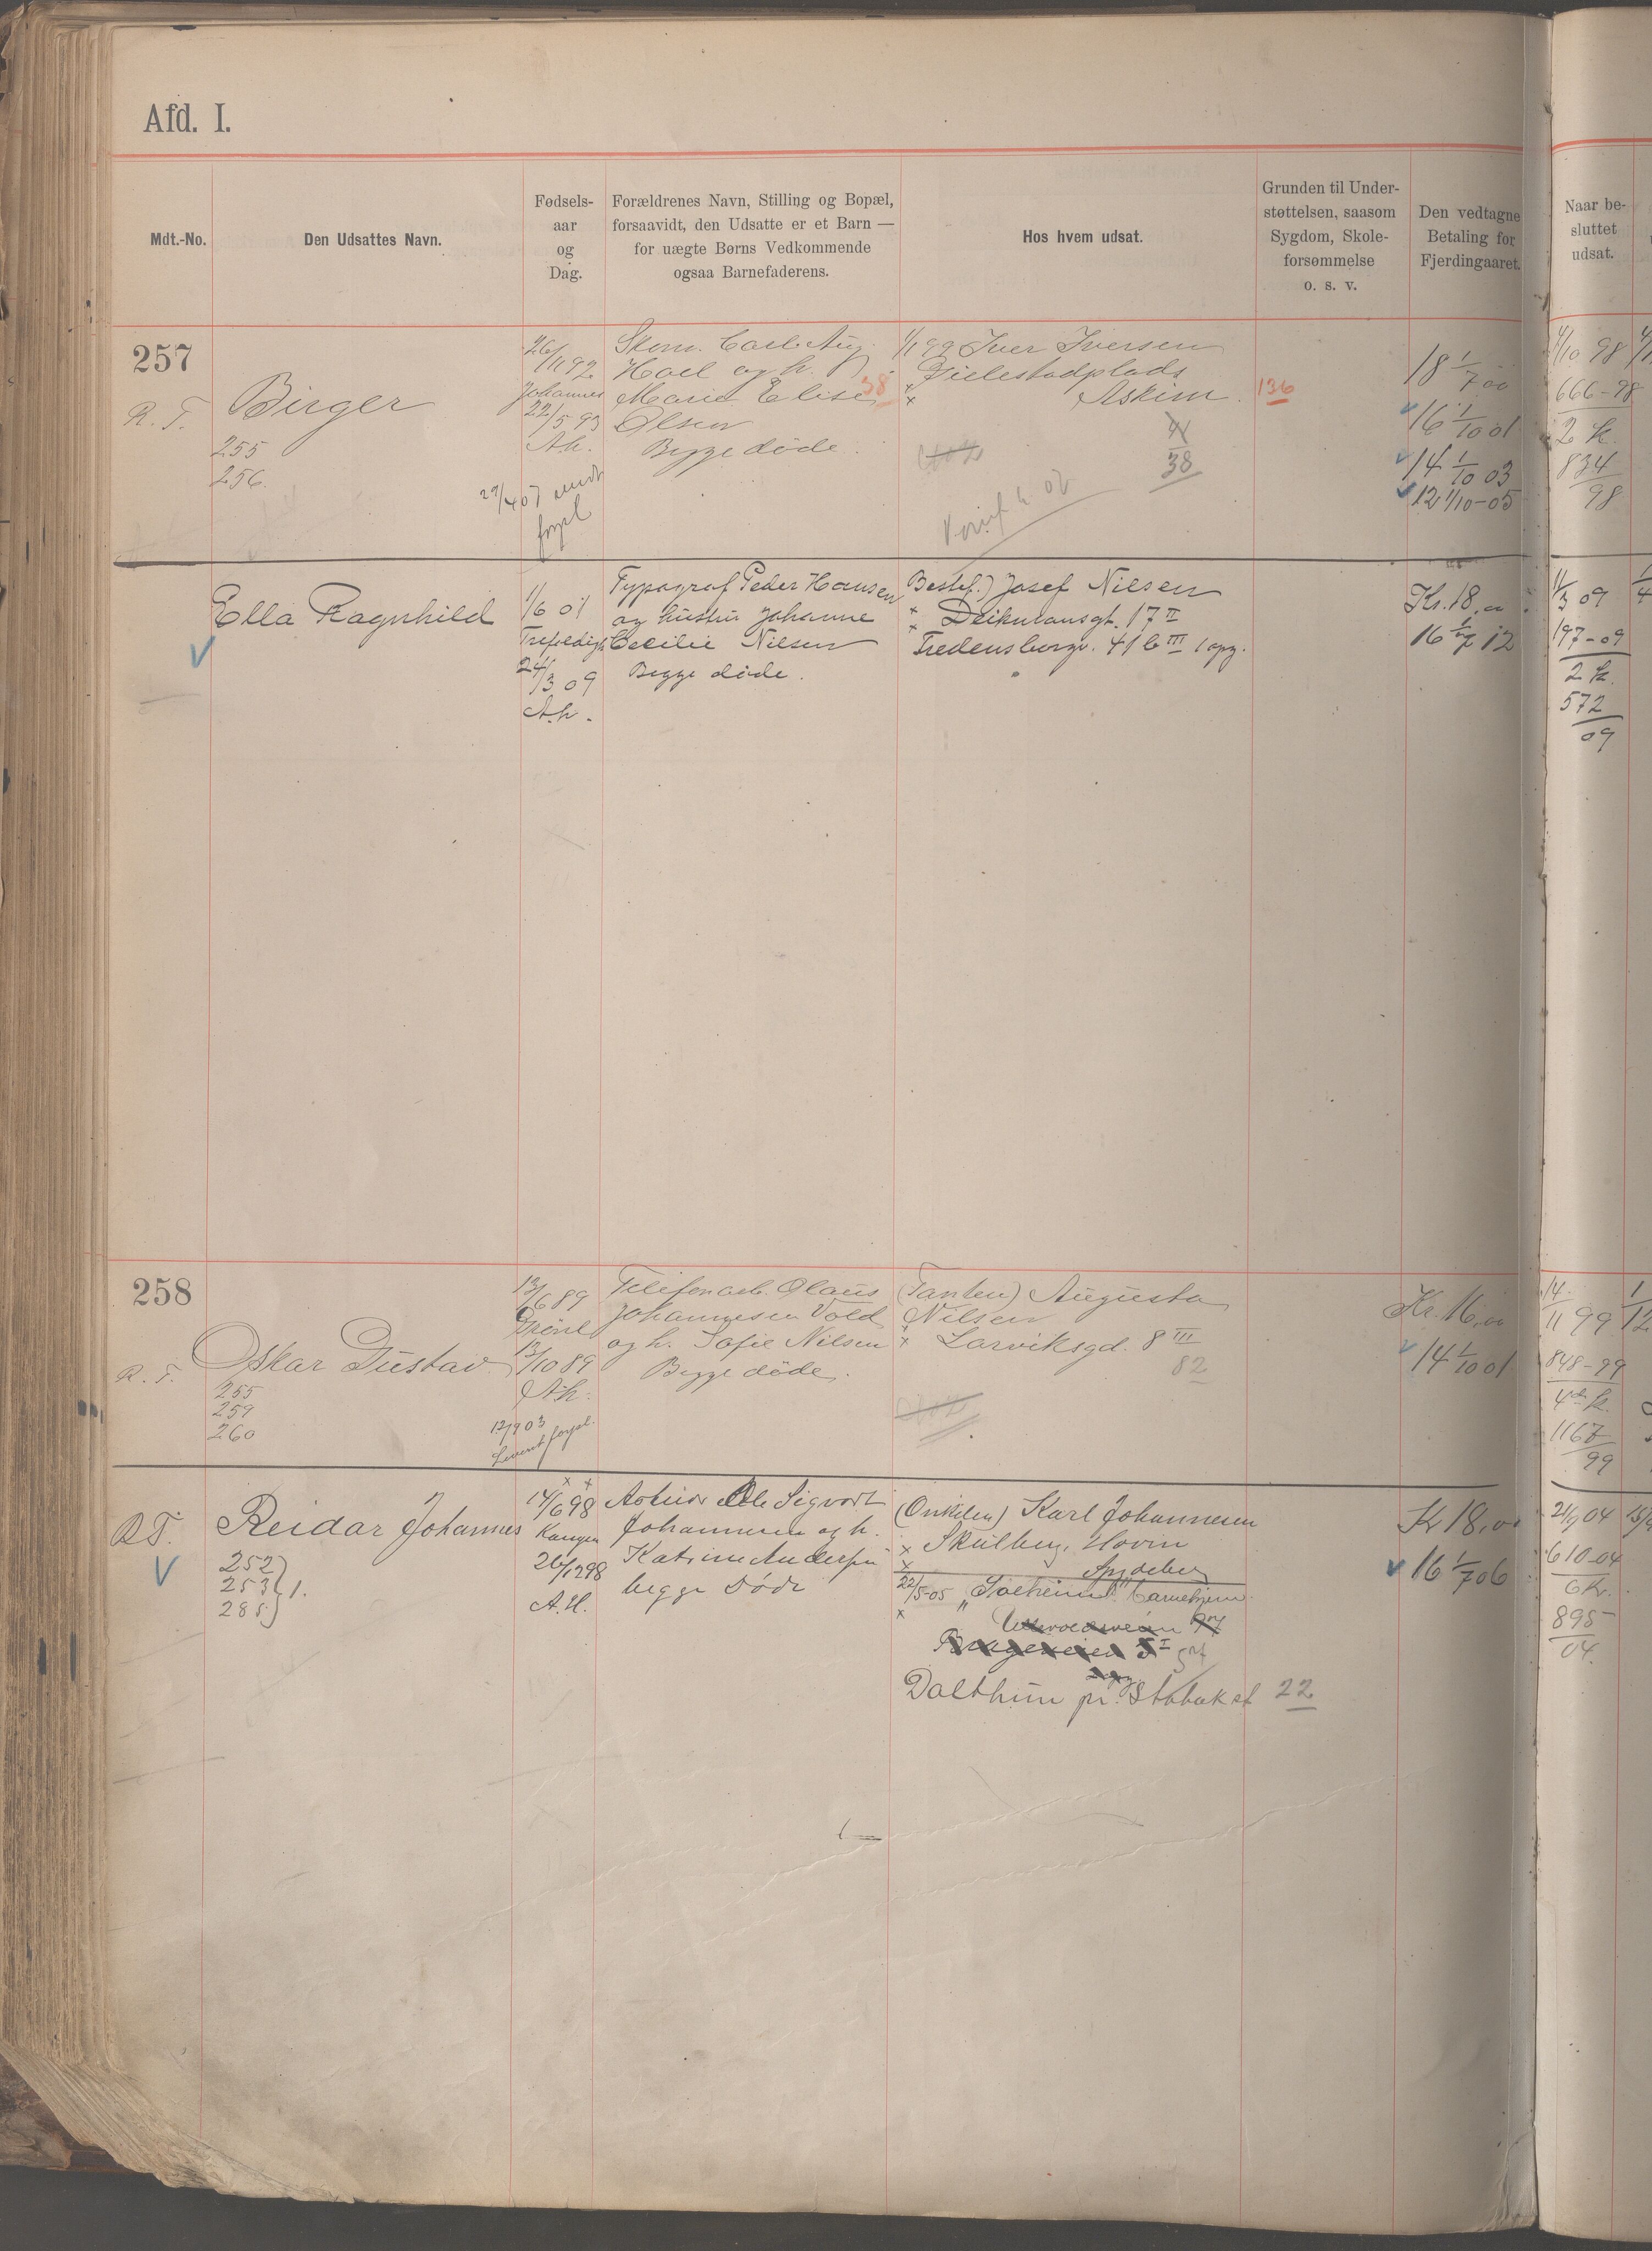 Afd. I.
Mdt.-No.
Den Udsattes Navn.
Fødsels-
aar
og
Dag.
Forældrenes Navn, Stilling og Bopæl,
forsaavidt, den Udsatte er et Barn —
for uægte Børns Vedkommende
ogsaa Barnefaderens.
Hos hvem udsat.
Grunden til Under-
støttelsen, saasom
Sygdom, Skole-
forsømmelse
o. s. v.
Den vedtagne
Betaling for
Fjerdingaaret.
Naar be-
sluttet
udsat.
257
R. F.
Birger
255
256.
26/11 92
Johannes
22/5 93
A.h.
Skom. Carl Aug.
Hoel og h.
Marie Elise 38
Olsen
Begge døde.
1/1 99 Iver Iversen
Askim.
38
136
18 1/7 00
16 1/10 01
14 1/10 03
12 1/10-05
1/10 98
666-98
2 k.
834
98
Ella Ragnhild
1/6 01
24/3 09
A.h.
Typograf Peder Hansen
og hustru Johanne
Cecilie Nilsen
Begge døde.
Bestef.) Josef Nilsen
17 II
Fredensborgv. 41 b III opg.
Kr. 18,00
16 1/7 12
11/3 09
197-09
2 k.
572
09
258
R. F.
Oskar Gustav
255
259
260
13/6 89
Grønl
13/10 89
A.h.
12/9 03
forpl.
Telefonarb. Olaus
Johannesen Vold
og h. Sofie Nilsen
Begge døde.
(Tanten) Augusta
Nilsen
Larviksgd. 8 III
82
Kr. 16,00
14 1/10 01
14.
11 99
848-99
4de k.
1167
99
R F.
Reidar Johannes
252
253 } 1.
285
14/6 98
Kampen
26/12 98
A.H.
Ole Sigvart
Johannesen og h.
Katrine Andersen
begge Døde
(Onkelen) Karl Johannesen
Skulberg, Hovin
Spydeberg
22/5-05 "Solheim" Barnehjem
22
Kr 18,00
16 1/7 06
21/9 04
610-04
6 k.
895
04.